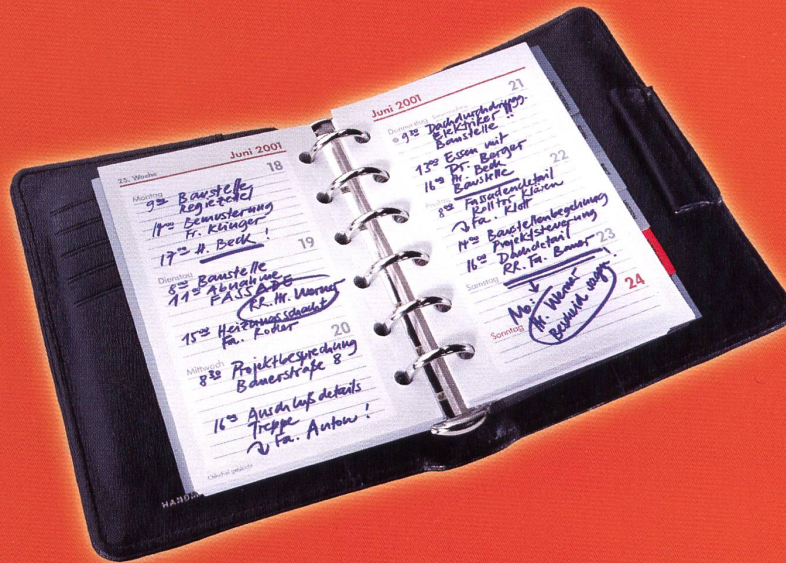 25. Woche
Juni 2001
Montag
18
9⁰⁰ Baustelle
Regiezettel
Bemusterung
Fr. Klinger
17⁰⁰ H. Beck!
Dienstag
19
8⁰⁰ Baustelle
11⁰⁰ Abnahme
FASSADE
RR. Hr. Werner
15⁰⁰ Heizungsschacht
Fa. Rodler
Mittwoch
20
8³⁰ Projektbesprechung
Bauerstraße 8
16⁰⁰ Anschlußdetails
Treppe
Fa. Anton!
Juni 2001
Donnerstag
21
9³⁰ Dachdurchdringg.
Elektriker !!
Baustelle
13⁰⁰ Essen mit
Dr. Berger
16⁰⁰ Hr. Beck
Baustelle
22
8⁰⁰ Fassadendetail
Rolltor klären
Fa. Klott
14⁰⁰ Baustellenbegehung
Projektsteuerung
16⁰⁰ Dachdetail
RR. Fa. Bauer!
Samstag
23
Mo.:
Hr. Werner
Bescheid sagen
Sonntag
24